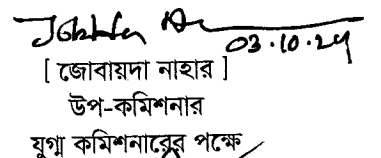 03.10.24
[ জোবায়দা নাহার ]
উপ-কমিশনার
যুগ্ম কমিশনারের পক্ষে